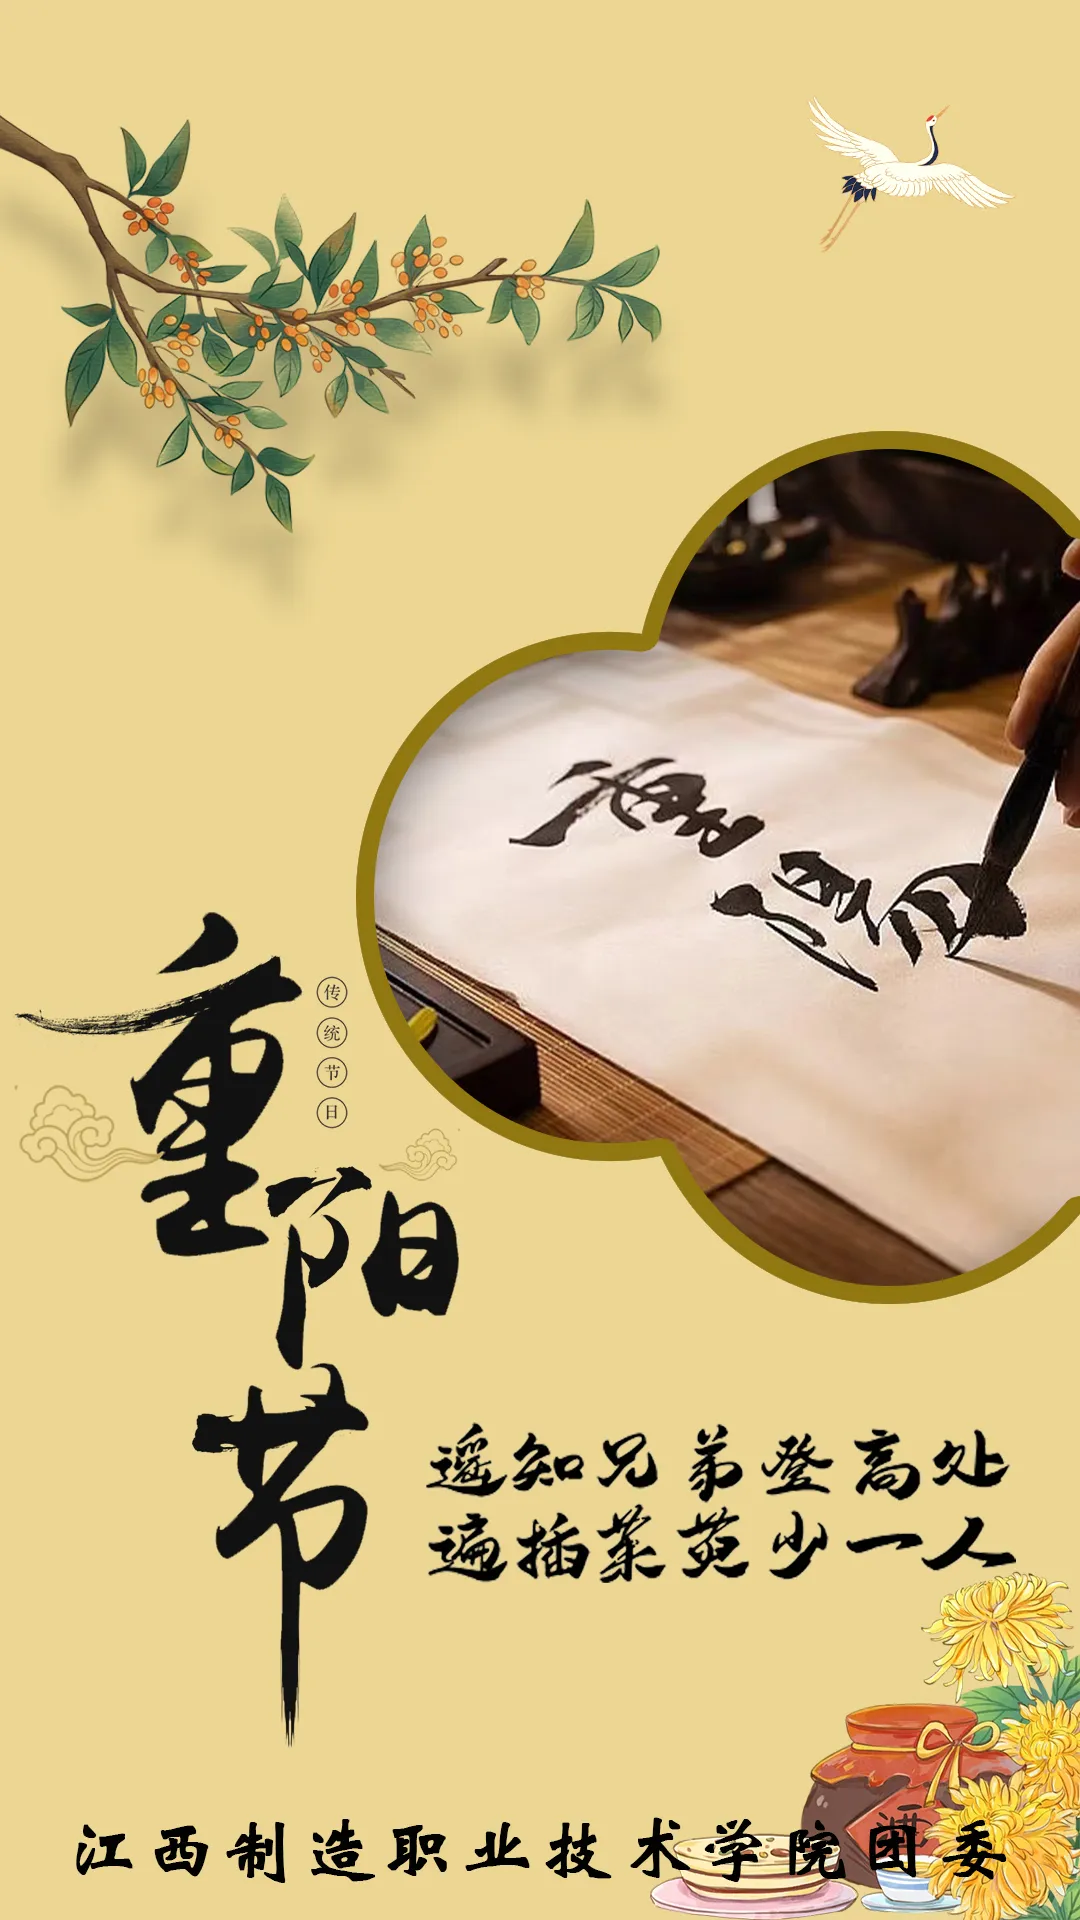 重阳节
传统节日
重陽
遥知兄弟登高处
遍插茱萸少一人
酒
江西制造职业技术学院团委